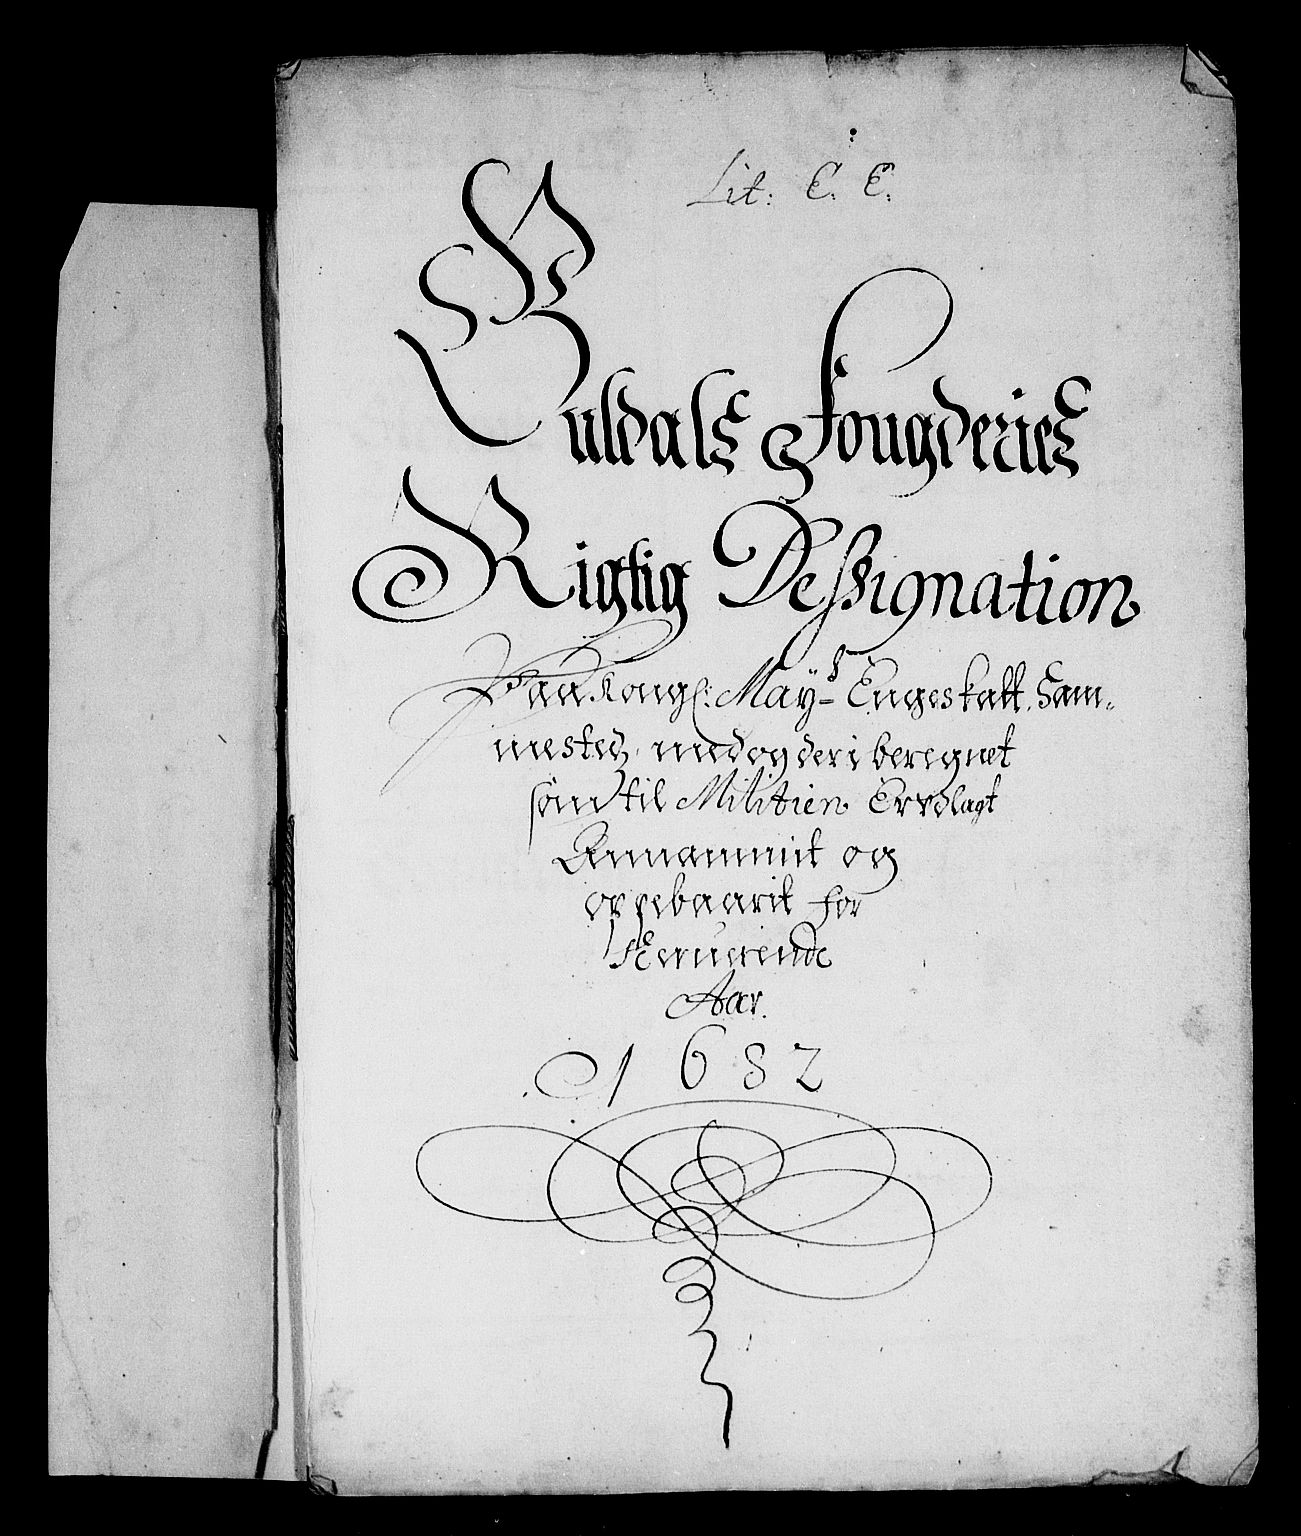 Lit: C. C.
Guldals Fougderies
Rigtig Dessignation
Paa Kongl: Mayts Engeskatt, Sam-
mested, med og der i beregnet
som til Militien Er vdlagt
Annammit og
oppebaarit for
Nerverende
Aar.
1682